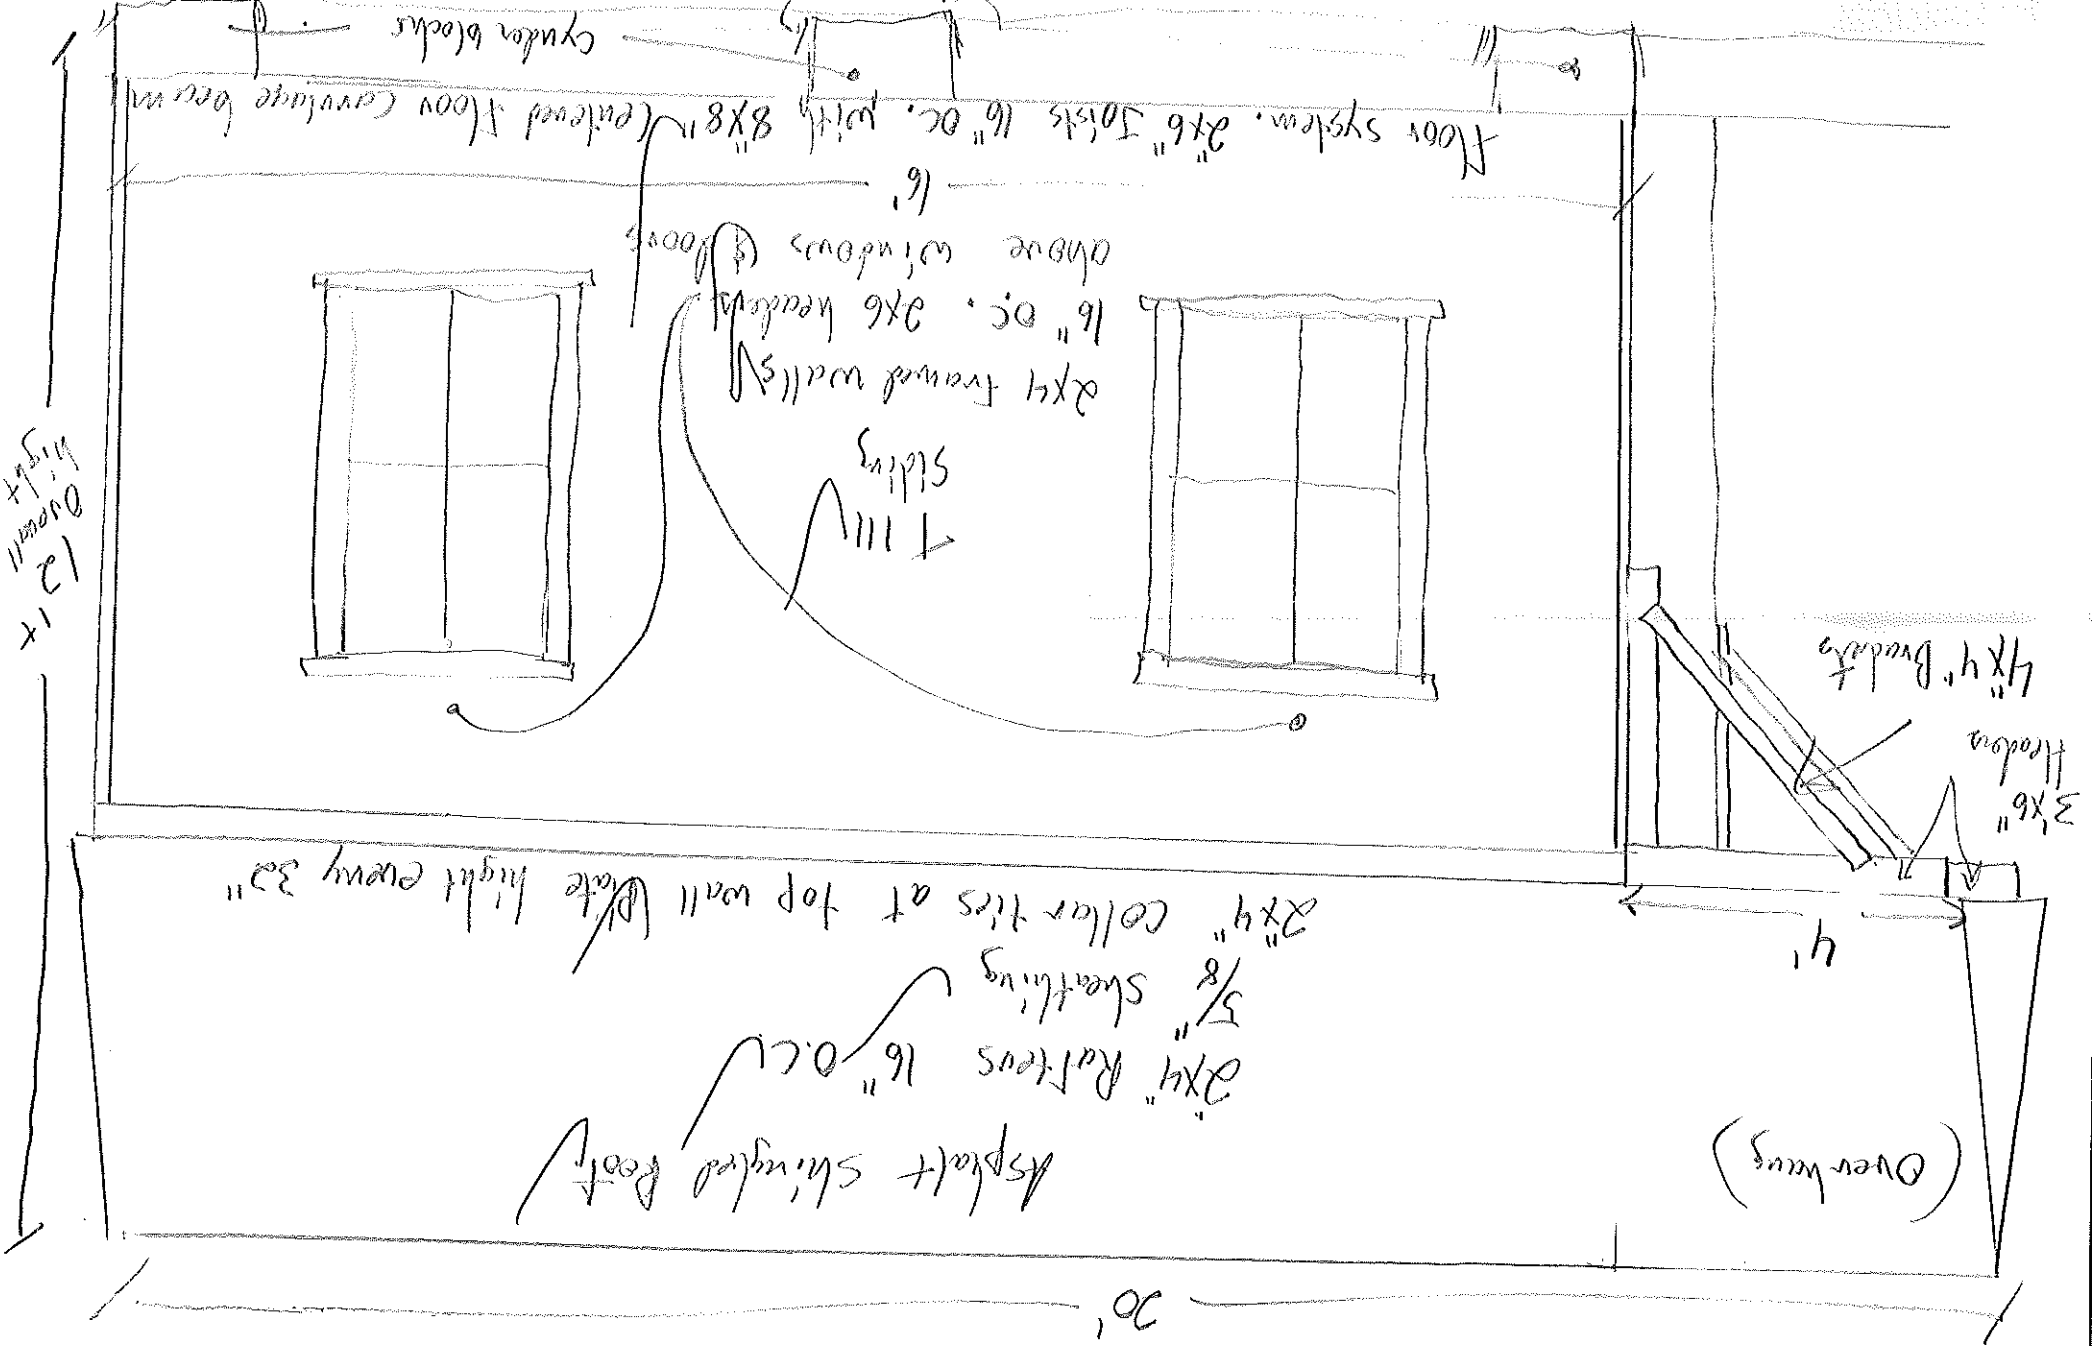 20'
(Overhang)
Asphalt shingled Roof
2"x4" Rafters 16" O.C.
5/8" sheathing
4'
2"x4" collar ties at top wall Plate hight every 32"
3'x6"
Headers
4"x4" Brackets
12 ft
Overall
hight
T 111
Siding
2x4 framed walls
16" O.C. 2x6 headers
above windows & doors
16'
floor system. 2"x6" Joists 16" OC. with 8"x8" Centered floor carriage beam
Cynder blocks